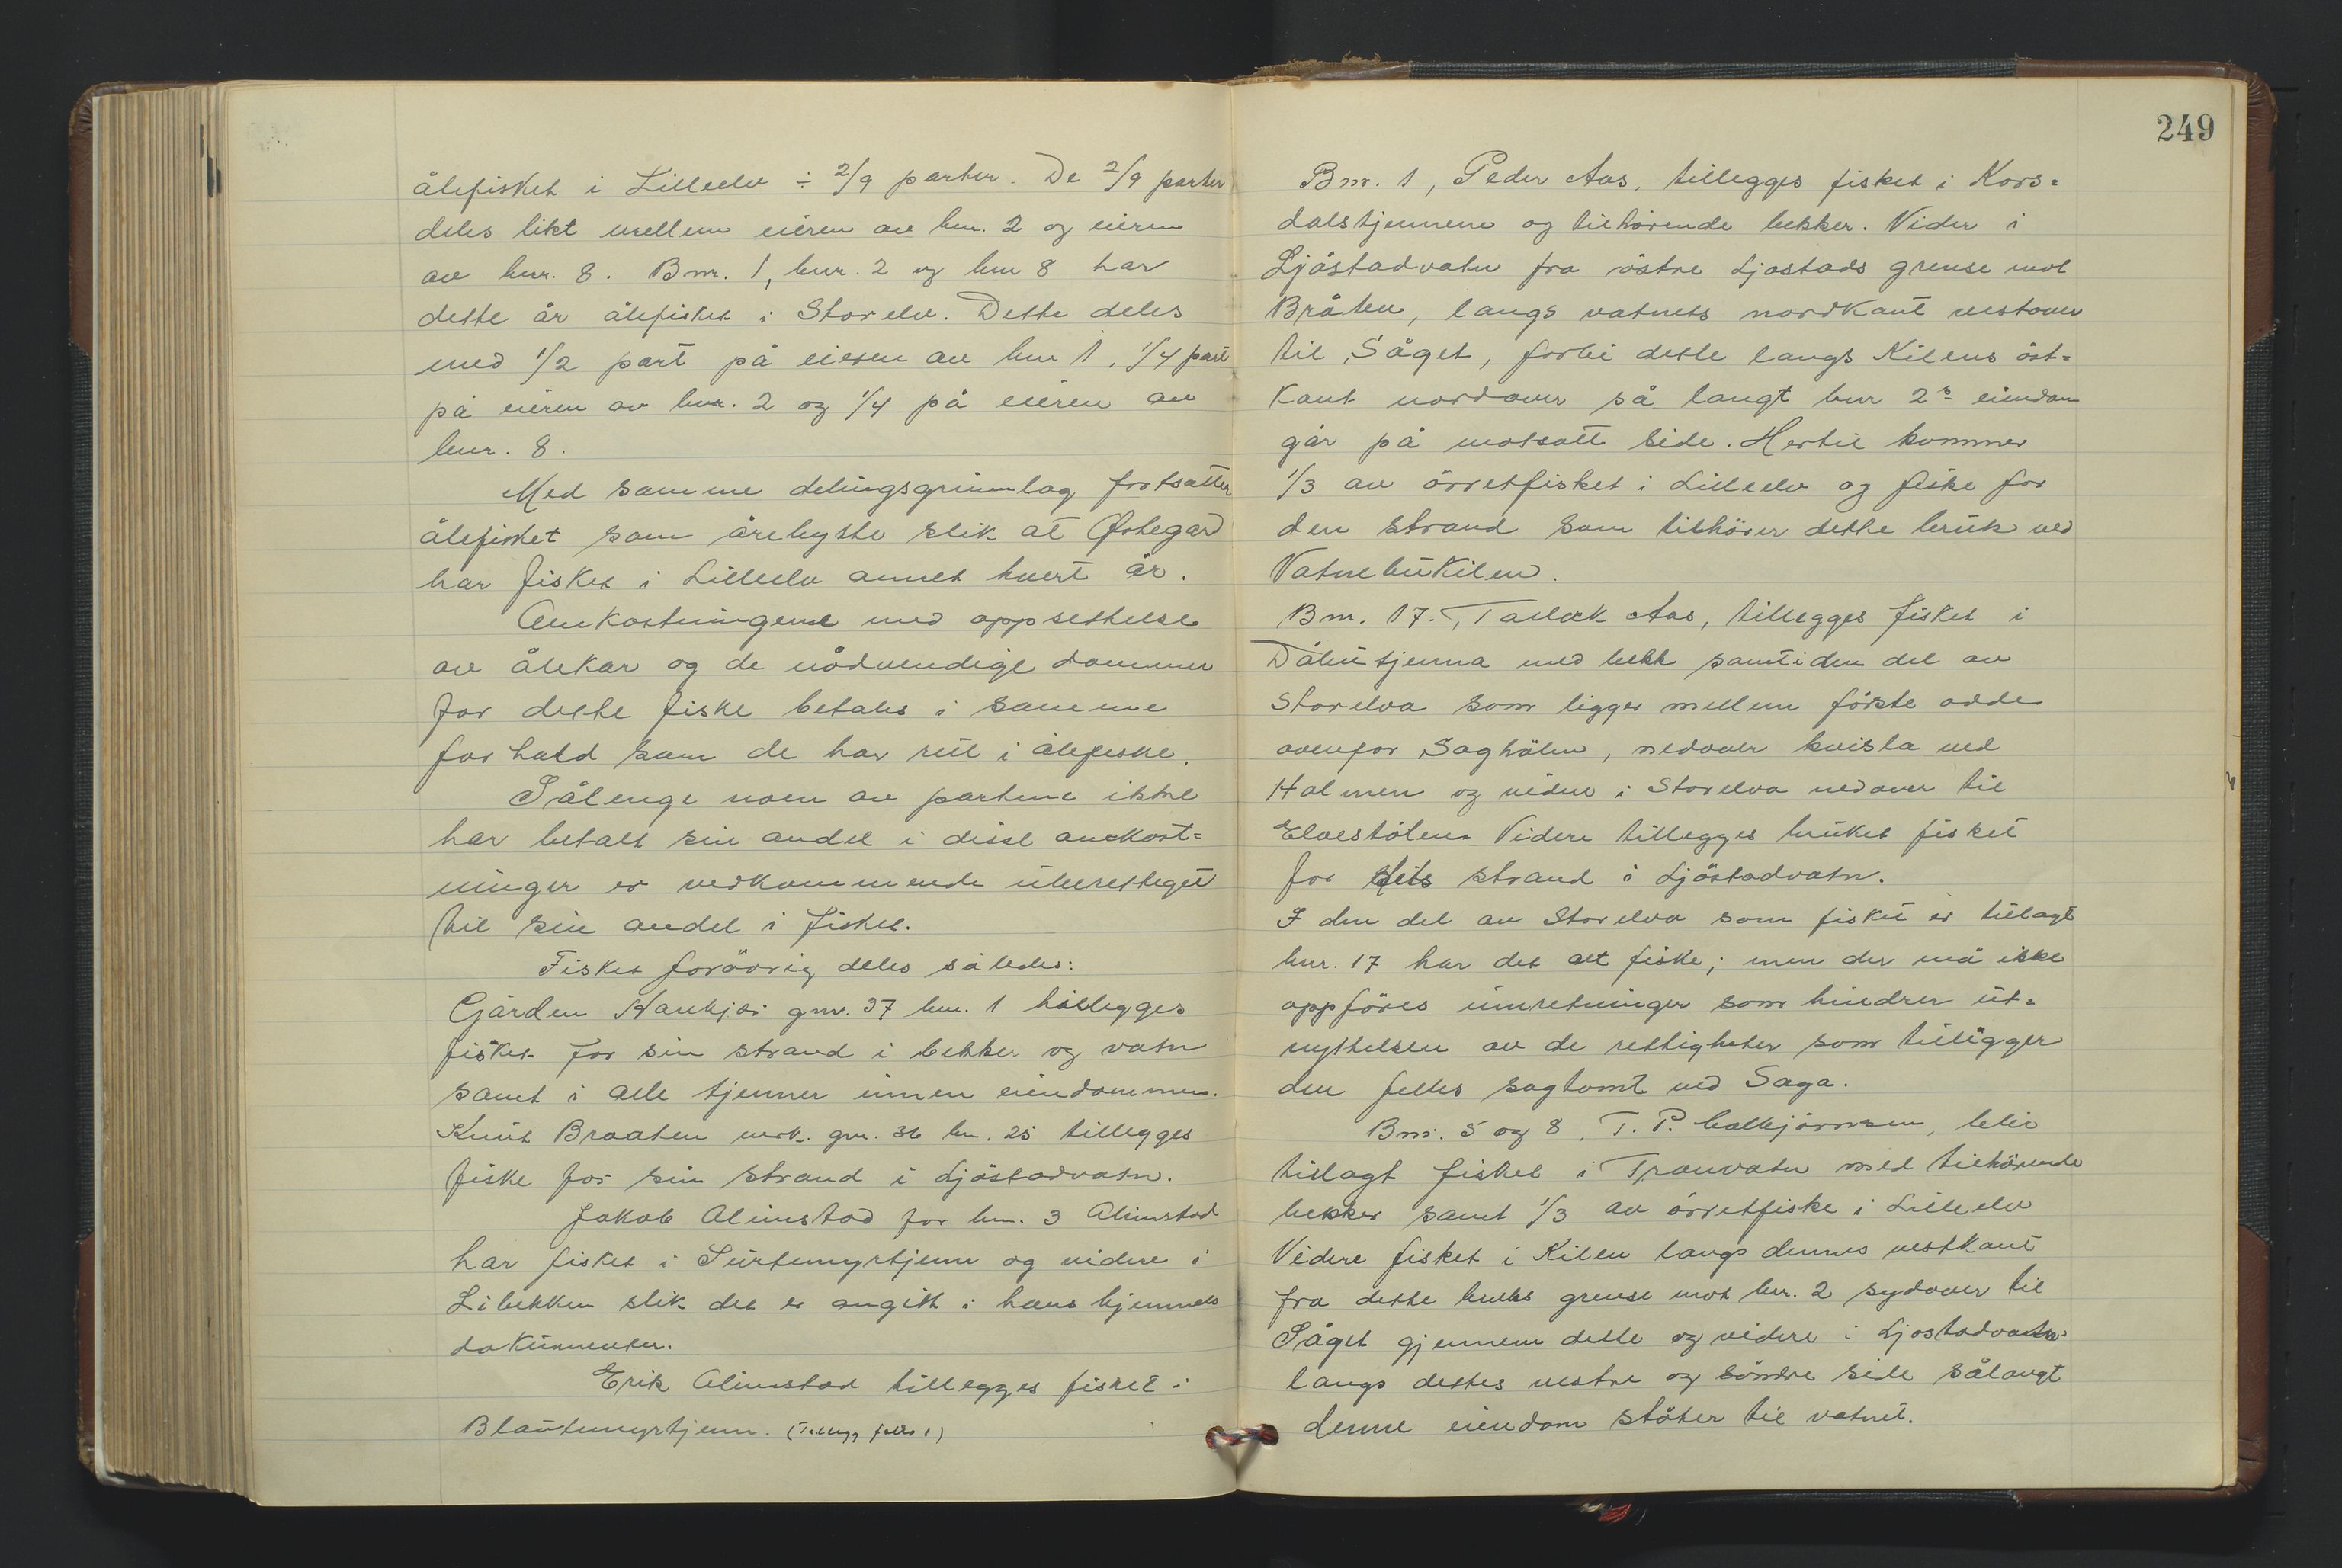 ålefisket i Lilleelv ÷ 2/9 parter. De 2/9 parter
deles likt mellem eieren av bnr. 2 og eieren
av bnr. 8. Bnr. 1, bnr. 2 og bnr 8 har
dette år ålefisket i Storelv. Dette deles
med 1/2 part på eieren av bnr 1, 1/4 part
på eieren av bnr. 2 og 1/4 på eieren av
bnr. 8.
Med samme delingsgrunnlag fortsetter
ålefisket som årebyste slik at Østegard
har fisket i Lilleelv annet hvert år.
Omkostningene med oppsettelse
av ålekar og de nödvendige dammer
for dette fiske betales i samme
forhold som de har rett i ålefiske.
Sålenge noen av partene ikke
har betalt sin andel i disse omkost=
ninger er vedkommende uberettiget
til sin andel i fisket.
Fisket forövrig deles således:
Gården Haukjær gnr. 37 bnr. 1 tillegges
fisket for sin strand i bekker og vatn
samt i alle tjenner innen eiendommen.
Knut Braaten gnr. 36 bn. 25 tillegges
fiske for sin strand i Ljöstadvatn.
Jakob Alimstad for bnr. 3 Alimstad
har fisket i Surtemyrtjenn og videre i
Libekken slik det er angitt i hans hjemmels
dokumenter.
Erik Alimstad tillegges fisket i
Blautemyrtjenn. (Tillegg felles 1)
249
Bnr. 1, Peder Aas, tillegges fisket i Kors=
dalstjennene og tilhörende bekker. Vider i
Ljöstadvatn fra östre Ljostads grense mot
Bråten, langs vatnets nordkant vestover
til Såget, forbi dette langs Kilens öst=
kant nordover så langt bnr 2s eiendom
går på motsatt side. Hertil kommer
1/3 av örretfisket i Lilleelv og fiske for
den strand som tilhörer dette bruk ved
Vatnebukilen.
Bnr. 17., Tallock Aas, tillegges fisket i
Dåbutjenna med bekk samt iden del av
Storelva som ligger mellem förste odde
ovenfor Saghölen, nedover kvisla ved
Holmen og videre i Storelva nedover til
Elvestölen. Videre tillegges bruket fisket
for sits strand i Ljöstadvatn.
I den del av Storelva som fisket er tillagt
bnr. 17 har det alt fiske; men der må ikke
oppföres innretninger som hindrer ut=
nyttelsen av de rettigheter som tilligger
den felles sagtomt ved Saga.
Bnr. 5 og 8, T. P. Colbjörnsen, blir
tillagt fisket i Tranvatn med tilhörende
bekker samt 1/3 av örretfiske i Lilleelv
Videre fisket i Kilen langs dennes vestkant
fra dette bruks grense mot bnr. 2 sydover til
Såget gjennem dette og videre i Ljostadvatn
langs dettes vestre og söndre side sålangt
denne eiendom stöter til vatnet.